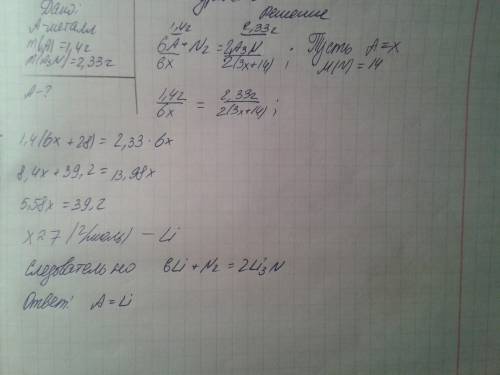 Дано:
A-металл
m(A)=1,4г
m(A₃N)=2,33г
A-?
Решение
1,4г 2,33г
6A+N₂=2A₃N . Пусть A=x
6x 2(3x+14) ; M(N)=14
1,4г/6x = 2,33г/2(3x+14) ;
1,4(6x+28)=2,33·6x
8,4x+39,2=13,98x
5,58x=39,2
x≈7 (г/моль) – Li
Следовательно 6Li+N₂=2Li₃N
Ответ: A=Li